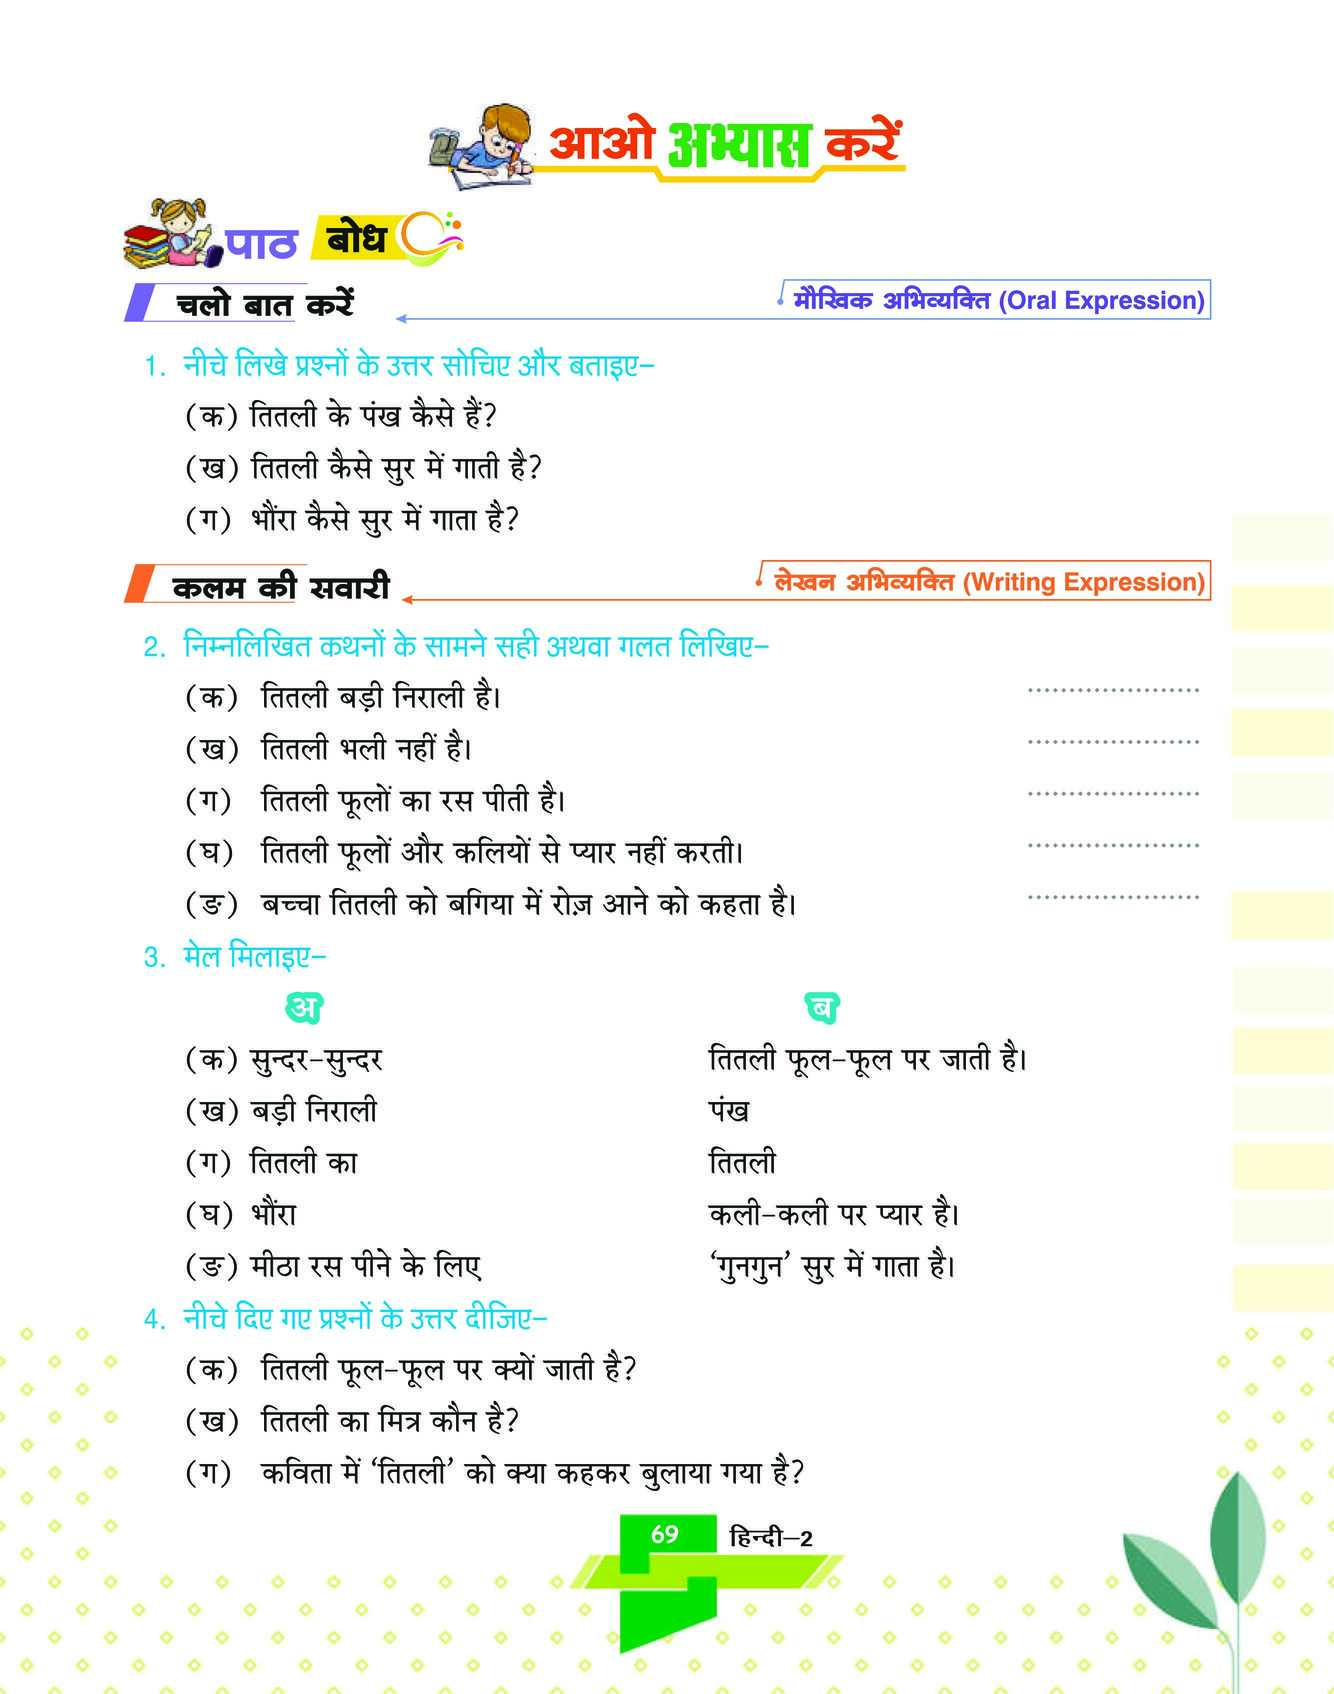 आओ अभ्यास करें
पाठ बोध
चलो बात करें
मौखिक अभिव्यक्ति (Oral Expression)
1. नीचे लिखे प्रश्नों के उत्तर सोचिए और बताइए–
(क) तितली के पंख कैसे हैं?
(ख) तितली कैसे सुर में गाती है?
(ग) भौंरा कैसे सुर में गाता है?
कलम की सवारी
लेखन अभिव्यक्ति (Writing Expression)
2. निम्नलिखित कथनों के सामने सही अथवा गलत लिखिए–
(क) तितली बड़ी निराली है। .....................
(ख) तितली भली नहीं है। .....................
(ग) तितली फूलों का रस पीती है। .....................
(घ) तितली फूलों और कलियों से प्यार नहीं करती। .....................
(ङ) बच्चा तितली को बगिया में रोज़ आने को कहता है। .....................
3. मेल मिलाइए–
अ ब
(क) सुन्दर-सुन्दर तितली फूल-फूल पर जाती है।
(ख) बड़ी निराली पंख
(ग) तितली का तितली
(घ) भौंरा कली-कली पर प्यार है।
(ङ) मीठा रस पीने के लिए ‘गुनगुन’ सुर में गाता है।
4. नीचे दिए गए प्रश्नों के उत्तर दीजिए–
(क) तितली फूल-फूल पर क्यों जाती है?
(ख) तितली का मित्र कौन है?
(ग) कविता में ‘तितली’ को क्या कहकर बुलाया गया है?
69 हिन्दी–2